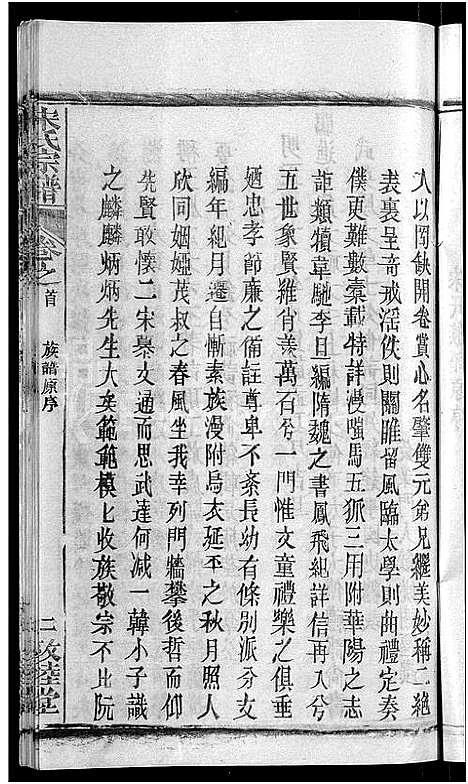 人以罔缺開卷賞心名肇雙元弟兄繼美妙稱二絕
表裏呈奇戒滛佚則關雎留風臨太學則曲禮定奏
僕更難數橐載特詳漫嗤馬五狐三用附華陽之志
詎類犢韋馳李旦編隋魏之書鳳飛紀詳信再入兮
五世象賢雖肖羨萬石兮一門惟文童禮樂之俱垂
廼忠孝節廉之備註尊卑不紊長幼有條別派分支
編年紀月還自慚素族漫附烏衣延平之秋月照人
欣同姻婭茂叔之春風坐我幸列門牆攀後哲而仰
先賢敢懷二宋慕文通而思武達何減一韓小子識
之麟麟炳炳先生大矣範範模七收族敬宗不比阮
宋氏宗譜 卷之首 族譜原序 二 敦睦堂